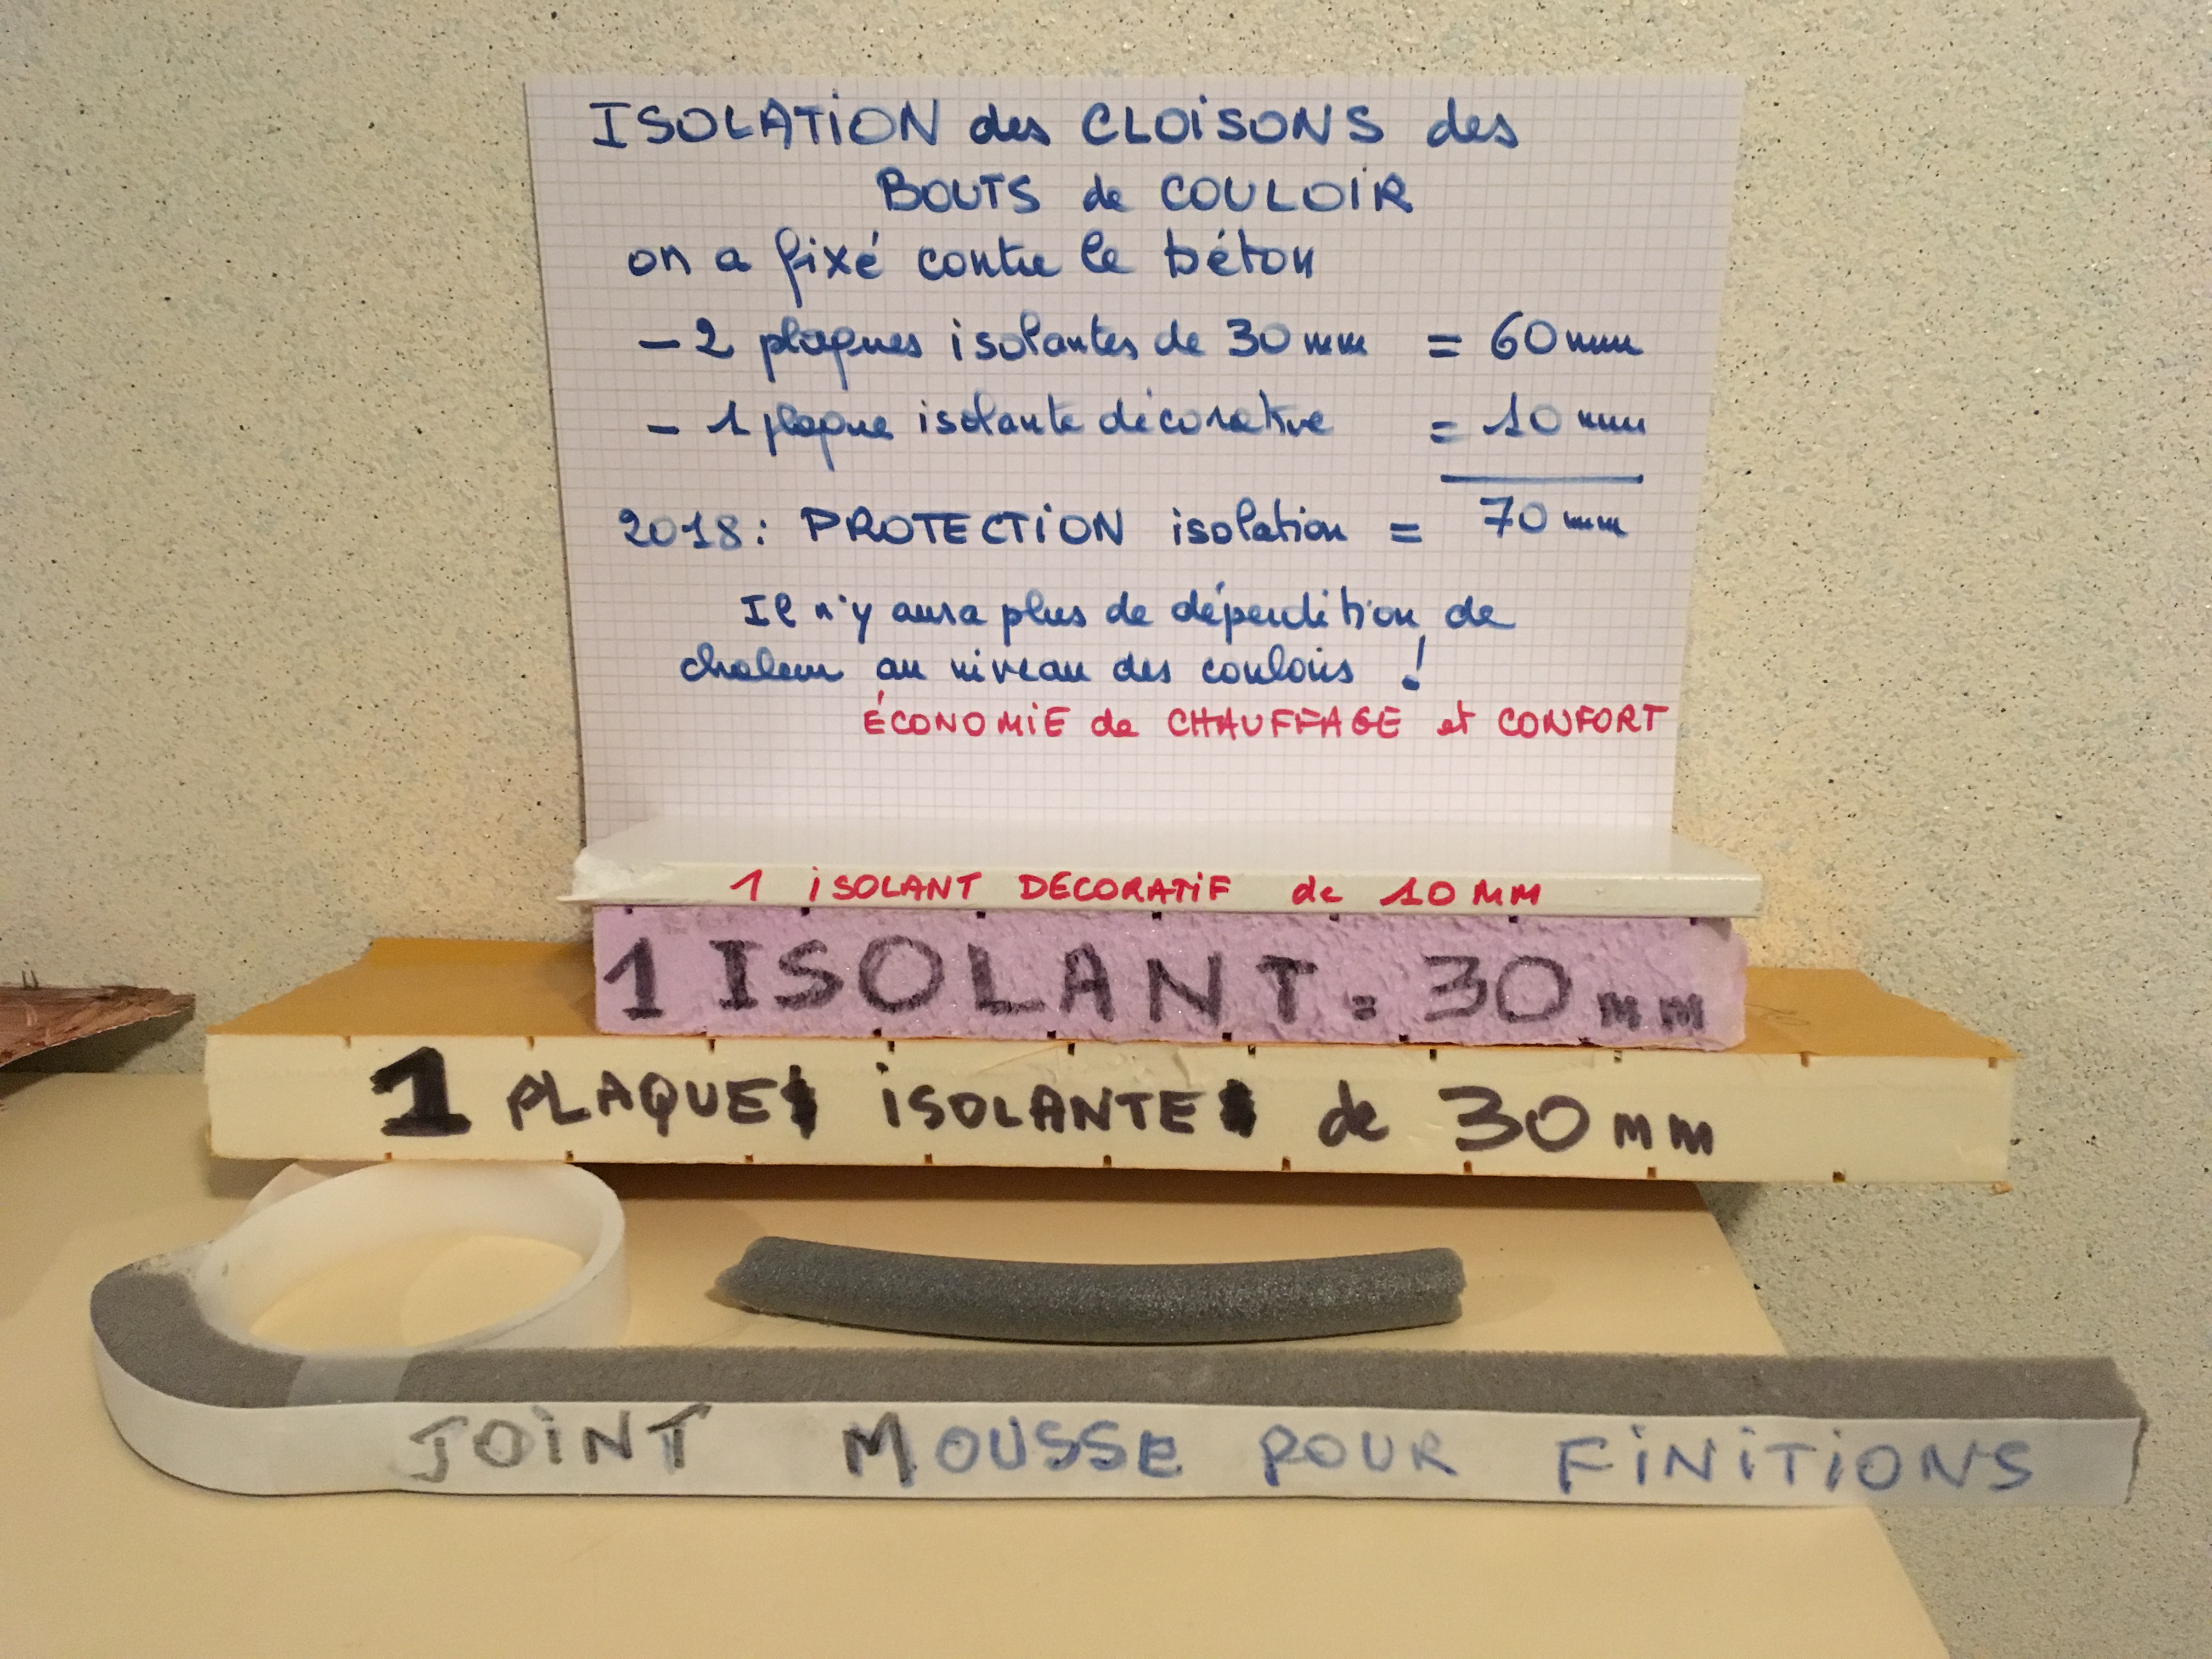 ISOLATION des CLOISONS des
BOUTS de COULOIR
on a fixé contre le béton
- 2 plaques isolantes de 30 mm = 60 mm
- 1 plaque isolante décorative = 10 mm
70 mm
2018: PROTECTION isolation =
Il n'y aura plus de déperdition de
chaleur au niveau des couloirs !
ÉCONOMIE de CHAUFFAGE et CONFORT
1 ISOLANT DECORATIF de 10 MM
1 ISOLANT = 30 mm
1 PLAQUE ISOLANTE de 30 mm
JOINT MOUSSE POUR FINITIONS